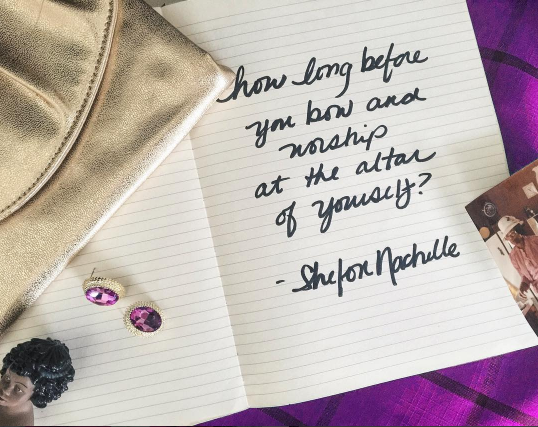 how long before
you bow and
worship
at the altar
of yourself?
- Shefon Nachelle